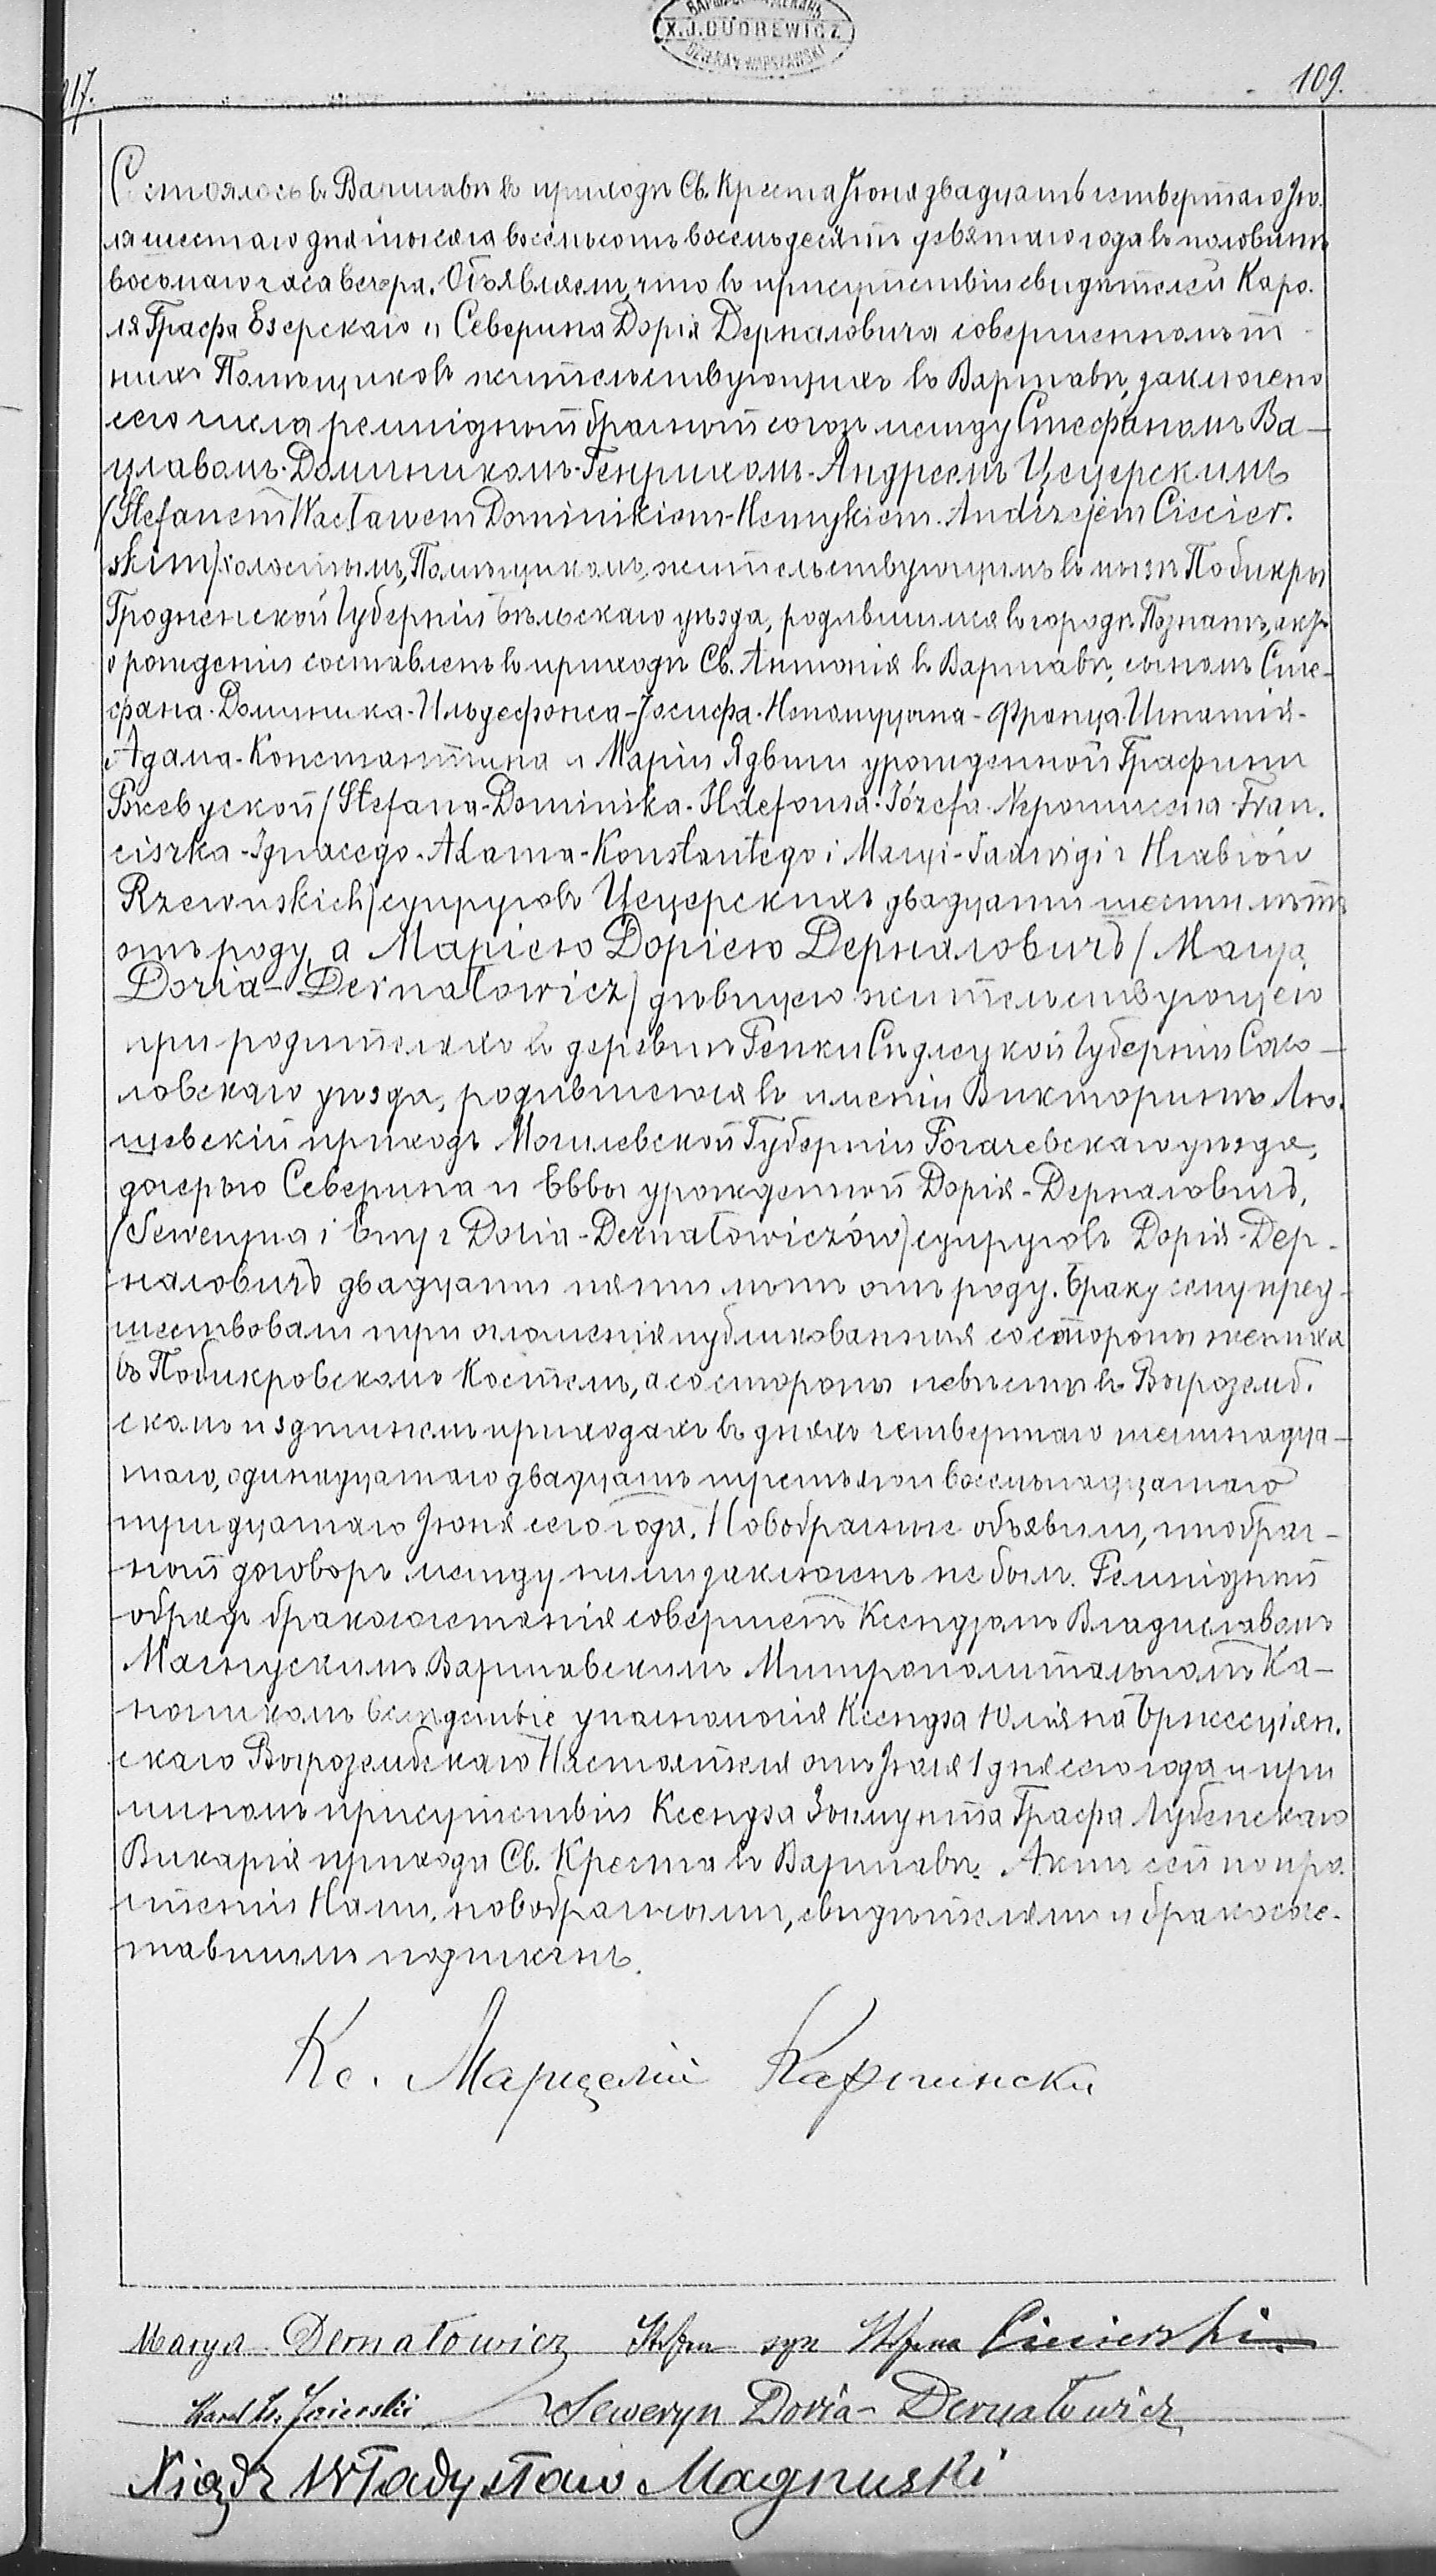 X.J.DUDREWICZ
DZIEKAN WARSZAWSKI
217.
109.
Состоялось въ Варшавѣ въ приходѣ Св. Креста Іюня двадцать четвертаго Ію-
ля шестаго дня тысяча восемьсотъ восемьдесятъ девятаго года въ половинѣ
восьмаго часа вечера. Объявляемъ, что въ присутствіи свидѣтелей Каро-
ля Графа Езерскаго и Северина Дорія Дерналовича совершеннолѣт-
нихъ Помѣщиковъ жительствующихъ въ Варшавѣ, заключено
сего числа религіозный брачный союзъ между Стефаномъ Ва-
цлавомъ-Доминикомъ-Генрихомъ-Андреемъ Цецерскимъ
(Stefanem Wacławem Dominikiem-Henrykiem-Andrzejem Ciecier-
skim) холостымъ, Помѣщикомъ, жительствующимъ въ мызѣ Побикры
Гродненской Губерніи Бѣльскаго уѣзда, родившимся въ городѣ Познанѣ, актъ
о рожденіи составленъ въ приходѣ Св. Антонія въ Варшавѣ, сыномъ Сте-
фана-Доминика-Ильдефонса-Іосифа-Непомуцена-Франца-Игнатія-
Адама-Константина и Маріи Ядвиги урожденной Графини
Ржевуской (Stefana-Dominika-Ildefonsa-Józefa-Nepomucena-Fran-
ciszka-Ignacego-Adama-Konstantego i Maryi-Jadwigi z Hrabiów
Rzewuskich) супруговъ Цецерскихъ двадцати шести лѣтъ
отъ роду, а Маріею Доріею Дерналовичъ (Marya
Doria-Dernałowicz) дѣвицею жительствующею
при родителяхъ въ деревнѣ Репки Сѣдлецкой Губерніи Соко-
ловскаго уѣзда, родившеюся въ имѣніи Викторинъ Лю-
шевскій приходъ Могилевской Губерніи Рогачевскаго уѣзда,
дочерью Северина и Еввы урожденной Дорія-Дерналовичъ,
(Seweryna i Ewy z Doria-Dernałowiczów) супруговъ Дорія-Дер-
наловичъ двадцати пяти лѣтъ отъ роду. Браку сему пред-
шествовали три оглашенія публикованныя со стороны жениха
въ Побикровскомъ Костелѣ, а со стороны невѣсты въ Выроземб-
скомъ и здѣшнемъ приходахъ въ дняхъ четвертаго шестнадца-
таго, одинадцатаго двадцать третьяго и восемьнадцатаго
тридцатаго Іюня сего года. Новобрачные объявили, что брач-
ной договоръ между ними заключенъ не былъ. Религіозный
обрядъ бракосочетанія совершенъ Ксендзомъ Владиславомъ
Магнускимъ Варшавскимъ Митрополитальнымъ Ка-
ноникомъ вслѣдствіе уполномочія Ксендза Юліяна Бржесціян-
скаго Вырозембскаго Настоятеля отъ Іюля 1 дня сего года и при
личномъ присутствіи Ксендза Зыгмунта Графа Лубенскаго
Викарія прихода Св. Креста въ Варшавѣ. Актъ сей по про-
чтеніи Нами, новобрачными, свидѣтелями и бракосоче-
тавшимъ подписанъ.
Кс. Марцелій
Marya Dernałowicz Stefan syn Stefana Ciecierski
Karol hr. Jezierski Seweryn Doria-Dernałowicz
Xiądz Władysław Magnuski